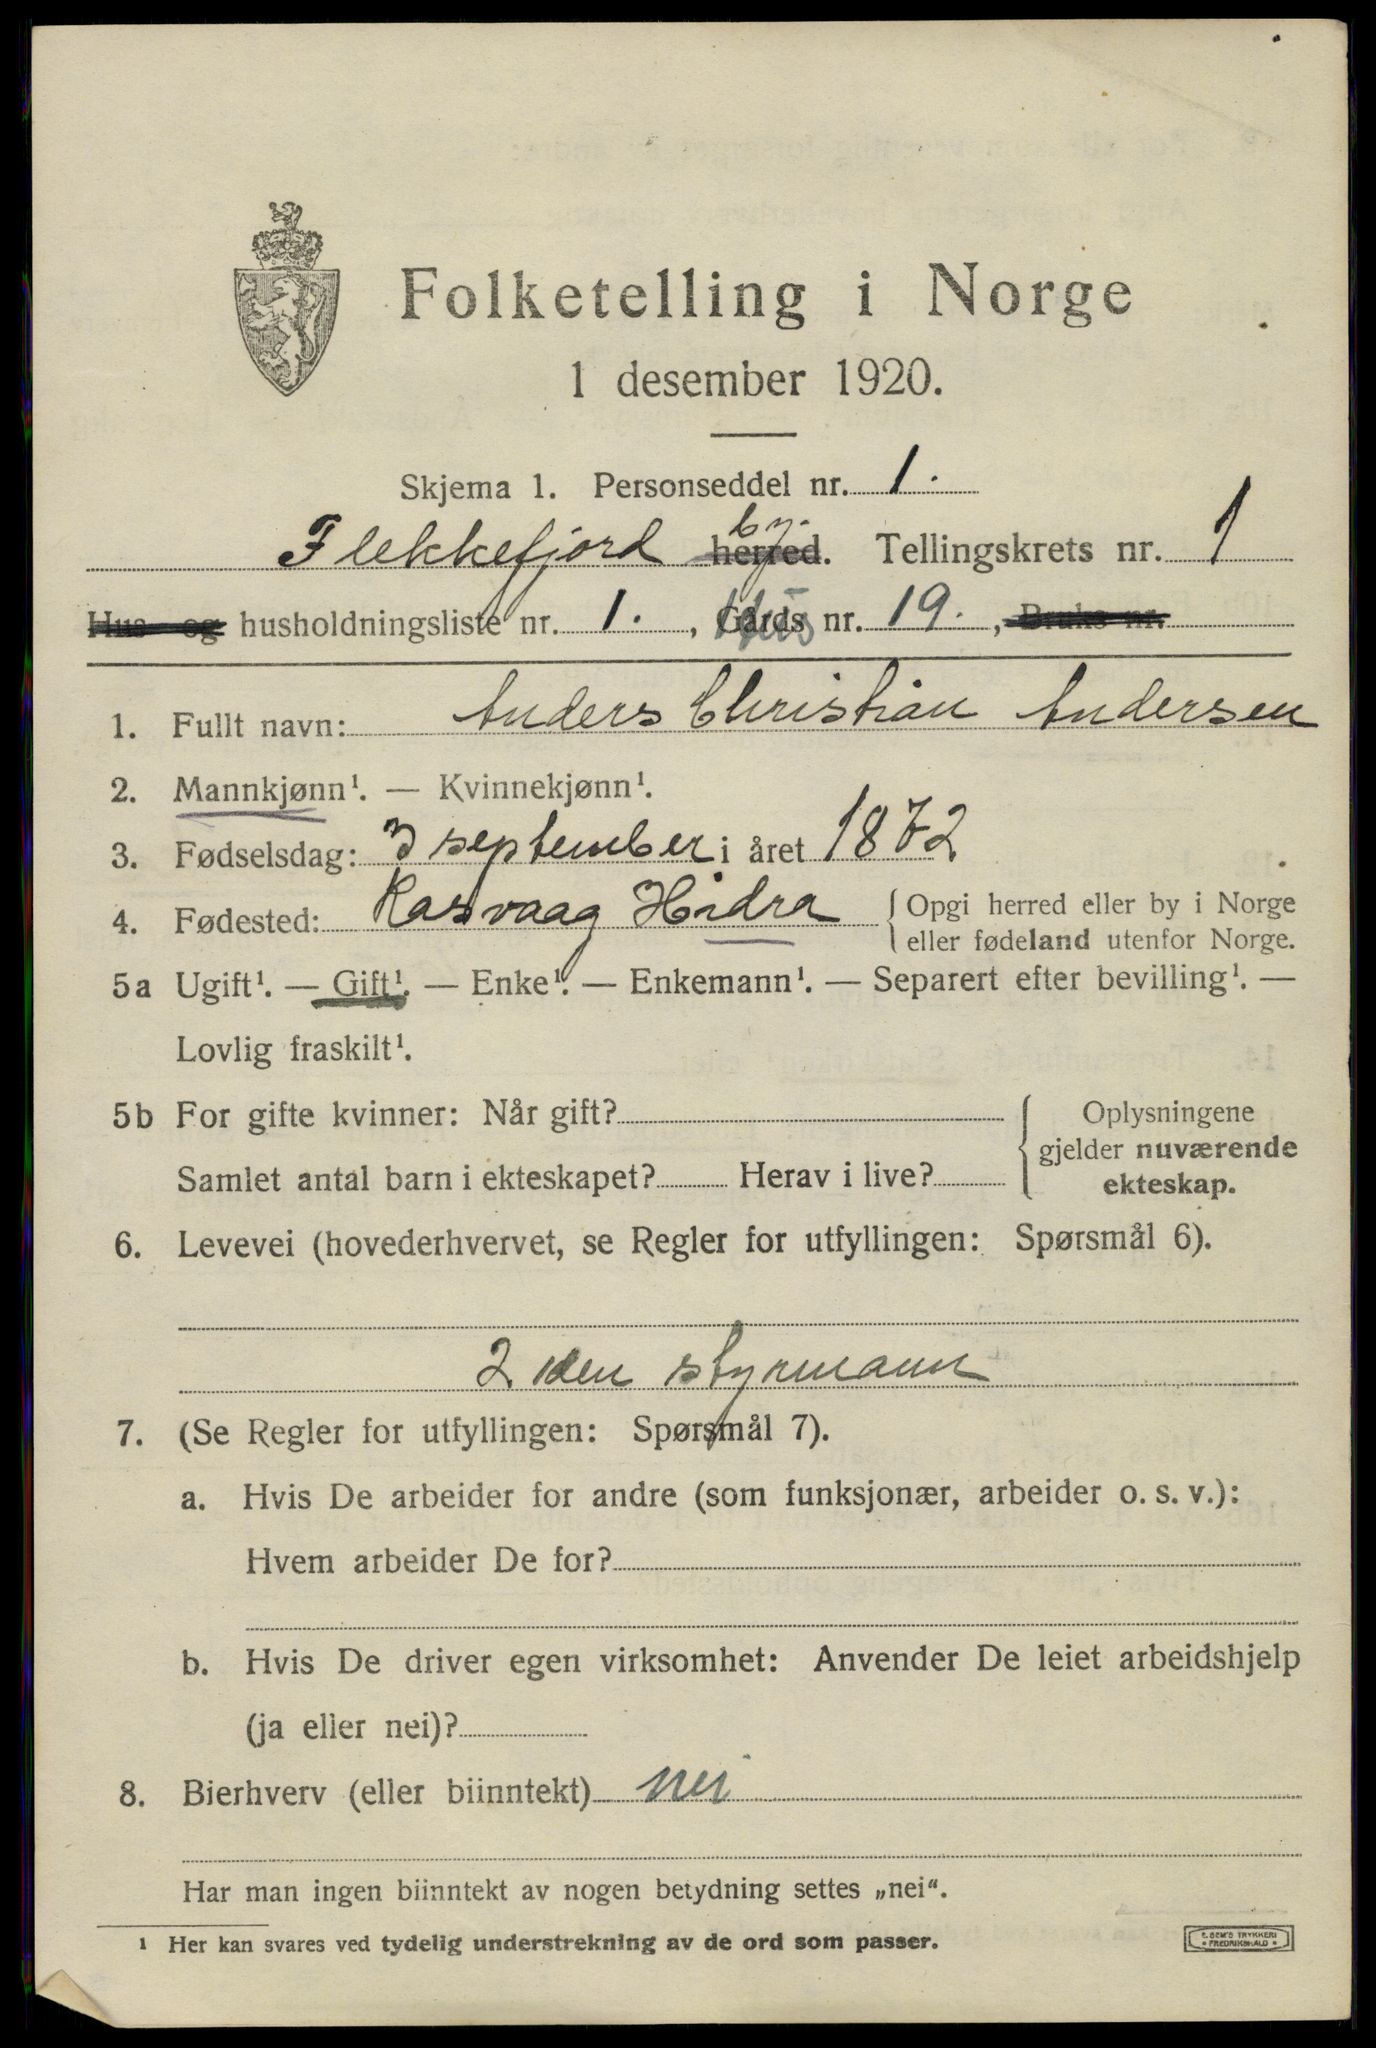 Folketelling i Norge
1 desember 1920.
Skjema 1. Personseddel nr. 1.
Flekkefjord herred. by. Tellingskrets nr. 1
Hus- og husholdningsliste nr. 1. , Gårds Hus nr. 19. , Bruks nr.
1. Fullt navn: Anders Christian Andersen
2. Mannkjønn¹. — Kvinnekjønn¹.
3. Fødselsdag: 3 september i året 1872
4. Fødested: Rasvaag Hidra { Opgi herred eller by i Norge
eller fødeland utenfor Norge.
5a Ugift¹. — Gift¹. — Enke¹. — Enkemann¹. — Separert efter bevilling¹. —
Lovlig fraskilt¹.
5b For gifte kvinner: Når gift? { Oplysningene
gjelder nuværende
Samlet antal barn i ekteskapet? Herav i live? ekteskap.
6. Levevei (hovederhvervet, se Regler for utfyllingen: Spørsmål 6).
2den styrmann
7. (Se Regler for utfyllingen: Spørsmål 7).
a. Hvis De arbeider for andre (som funksjonær, arbeider o. s. v.):
Hvem arbeider De for?
b. Hvis De driver egen virksomhet: Anvender De leiet arbeidshjelp
(ja eller nei)?
8. Bierhverv (eller biinntekt) nei
Har man ingen biinntekt av nogen betydning settes „nei“.
¹ Her kan svares ved tydelig understrekning av de ord som passer.
E. SEM'S TRYKKERI
• FREDRIKSHALD •